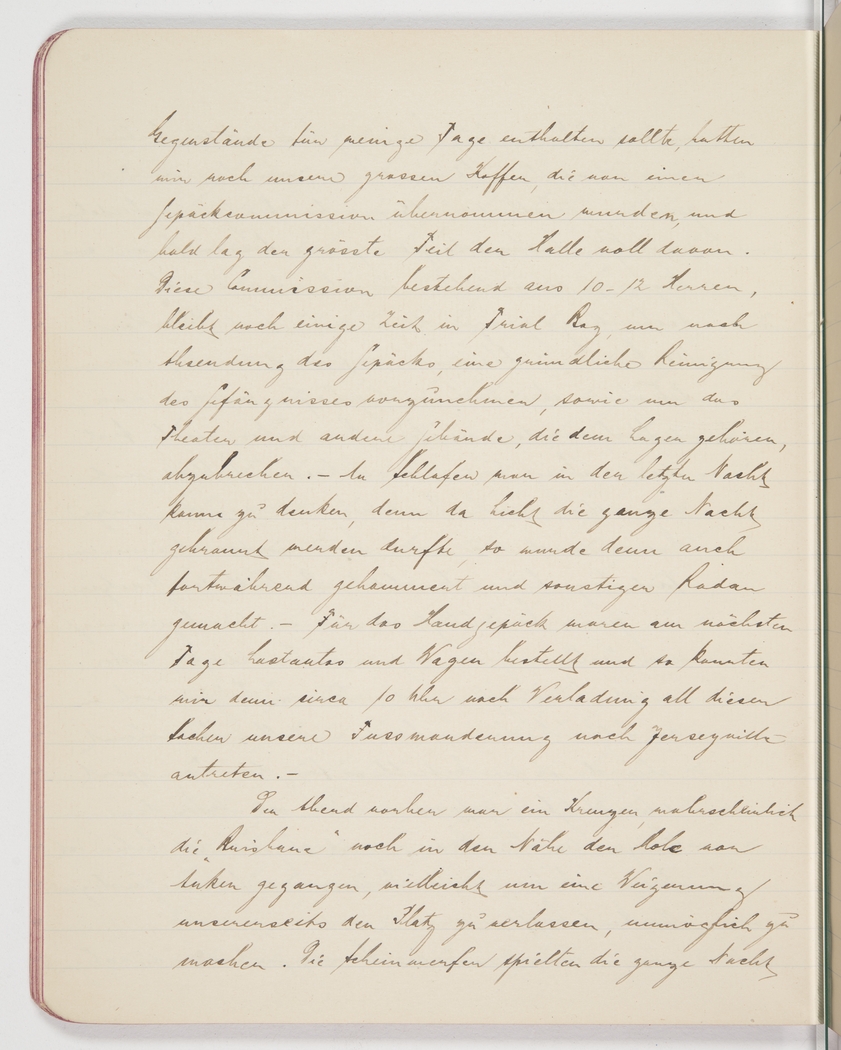 Gegenstände für wenige Tage enthalten sollte, hatten
wir noch unsere grossen Koffer, die von einer
Gepäckcommission übernommen wurden, und
bald lag der grösste Teil der Halle voll davon.
Diese Commission bestehend aus 10-12 Herren,
bleibt noch einige Zeit in Trial Bay, um nach
Absendung des Gepäcks, eine gründliche Reinigung
des Gefängnisses vorzunehmen, sowie um das
Theater und andere Gebäude, die dem Lager gehören,
abzubrechen. – An Schlafen war in der letzten Nacht
kaum zu denken, denn da Licht die ganze Nacht
gebrannt werden durfte, so wurde denn auch
fortwährend gehämmert und sonstiger Radau
gemacht. – Für das Handgepäck waren am nächsten
Tage Lastautos und Wagen bestellt und so konnten
wir denn circa 10 Uhr nach Verladung all dieser
Sachen unsere Fusswanderung nach Jerseyville
antreten. –
Den Abend vorher war ein Kreuzer, wahrscheinlich
die „Brisbane" noch in der Nähe der Mole vor
Anker gegangen, vielleicht um eine Weigerung
unsererseits den Platz zu verlassen, unmöglich zu
machen. Die Scheinwerfer spielten die ganze Nacht